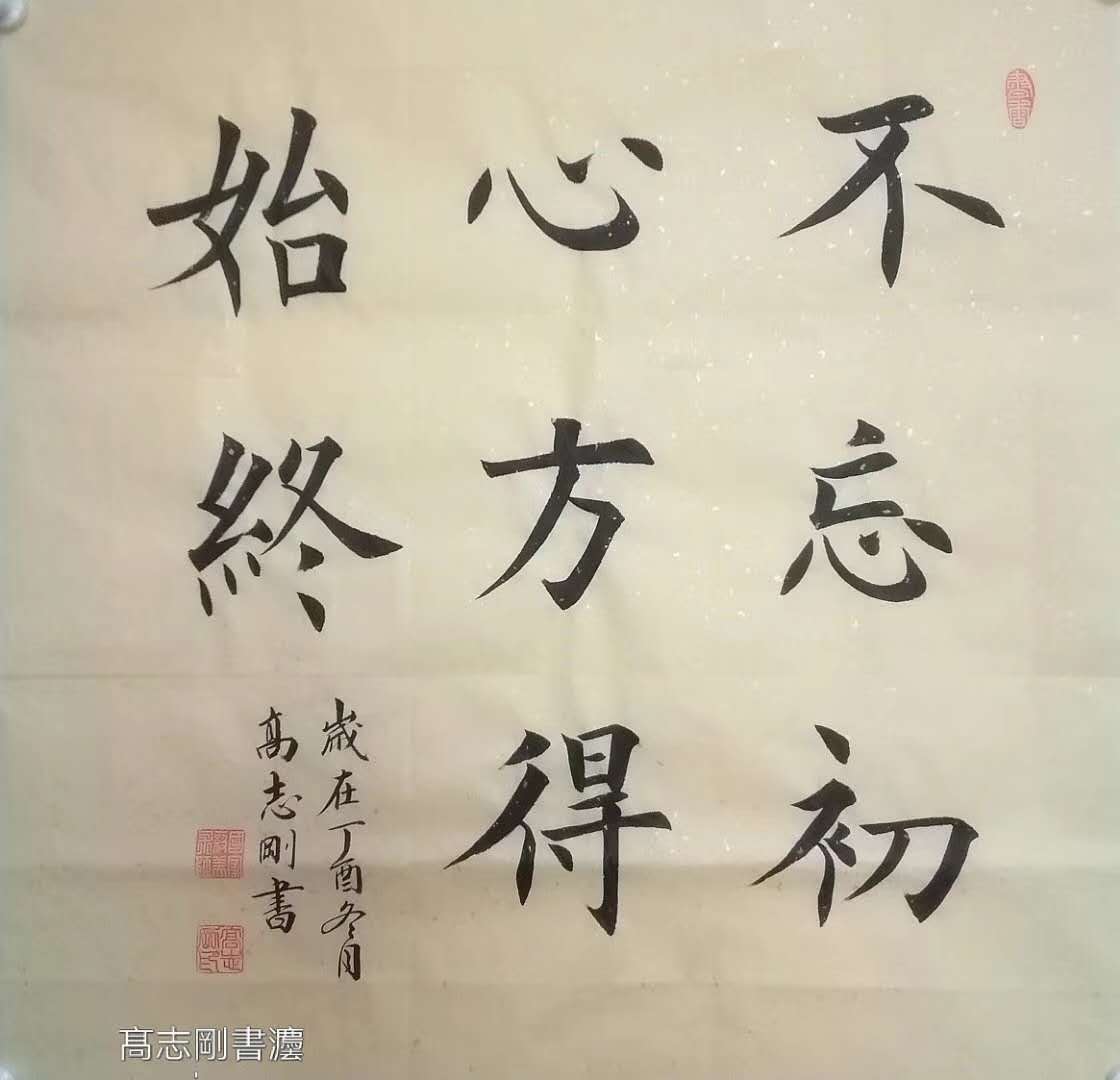 不忘初
心方得
始終
歲在丁酉冬月
高志剛書
高志剛書灋